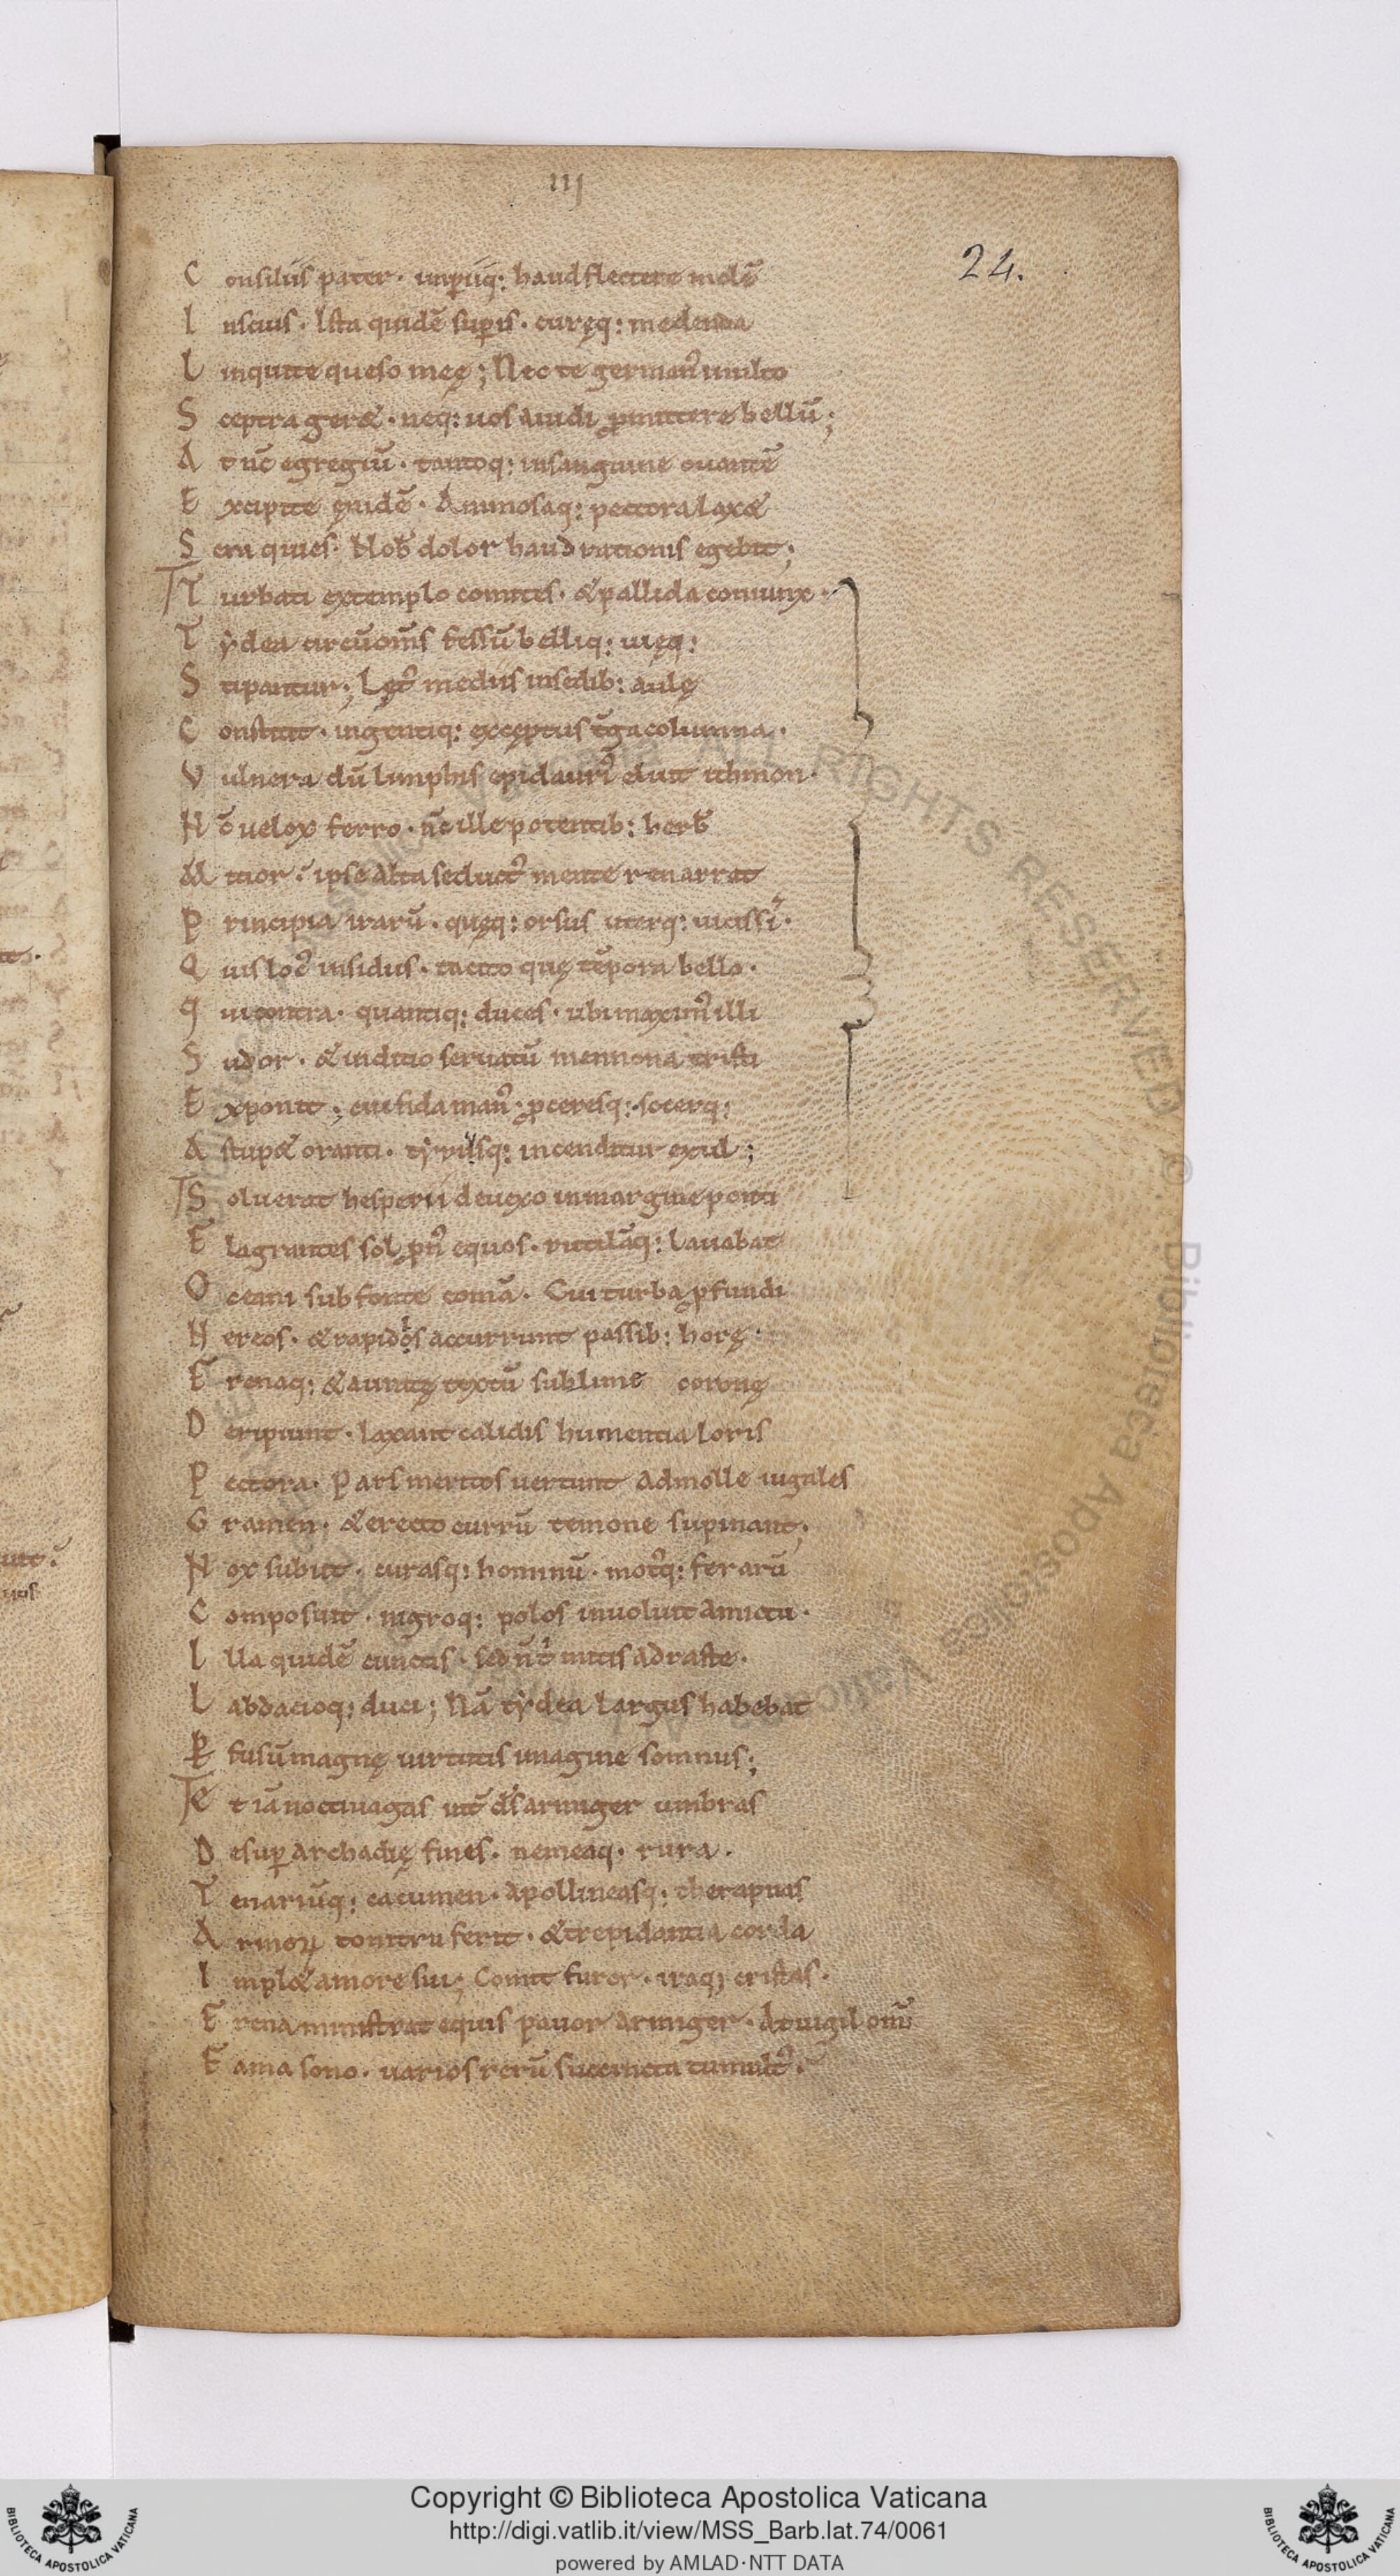 iij
24.
C onsiliis pater· imperiisq: haud flectere molē
I nscius· Ista quidē superis· curęq: medenda
L inquite queso meę; Nec te germanꝰ multo
S ceptra geret· neq: uos auidi ꝓmittere bellū;
A t nc̄ egregiū· tantoq: in sanguine ouantē
E xcipite ęnidē· Animosaq: pectora laxet
S era quies· Nob̄ dolor haud rationis egebit;
T urbati extemplo comites· & pallida coniunx·
T ẏdea circū om̄s fessū belliq: uięq:
S tipantur; Lętꝰ mediis in sedib: aulę
C onstitit· ingentiq: exceptus t̄ga columna·
V ulnera dū limphis epidaurꝰ eluit ithmon·
N c̄ uelox ferro· nc̄ ille potentib: herb̄
M itior· ipse alta seductꝰ mente renarrat
P rincipia irarū· quęq: orsus uterq: uicissī·
Q uis locꝰ insidiis· tacito quę tēpora bello·
Q ui contra· quantiq: duces· ubi maximꝰ illi
S udor· & inditio seruatū meonona tristi
E xponit; cui fida manꝰ· ꝓceresq: socerq:
A stupet oranti· tẏriusq: incenditur exul;
S oluerat hesperii deuexo in margine ponti
F lagrantes sol pn̄ꝰ equos· rutilāq: lauabat
O ceani sub fonte comā· Cui turba ꝓfundi
N ereos· & rapidis accurrunt passib: horę·
F renaq: & auratę textū sublime coronę
D eripiunt· laxant calidis humentia loris
P ectora· Pars meritos uertunt ad molle iugales
G ramen· & erecto currū temone supinant·
N ox subiit· curasq: hominū· motꝰq: ferarū
C omposuit· nigroq: polos inuoluit amictu·
I lla quidē cunctis· sed n̄ t' mitis adraste·
L abdacioq: duci; Nā tẏdea largus habebat
P̲ fusū magnę uirtutis imagine somnus;
E t iā noctiuagas int̄ d̄s armiger umbras
D esup̱ archadię fines· nemeaq· rura·
T enariūq: cacumen· apollineasq: therapnas
A rmoꝝ tonitru ferit· & trepidantia corda
I mplet amore sui; Comit furor· iraq; cristas·
F rena ministrat equis pauor armiger· At uigil om̄i
F ama sono· uarios rerū succincta tumultꝰ·
Copyright © Biblioteca Apostolica Vaticana
http://digi.vatlib.it/view/MSS_Barb.lat.74/0061
powered by AMLAD·NTT DATA